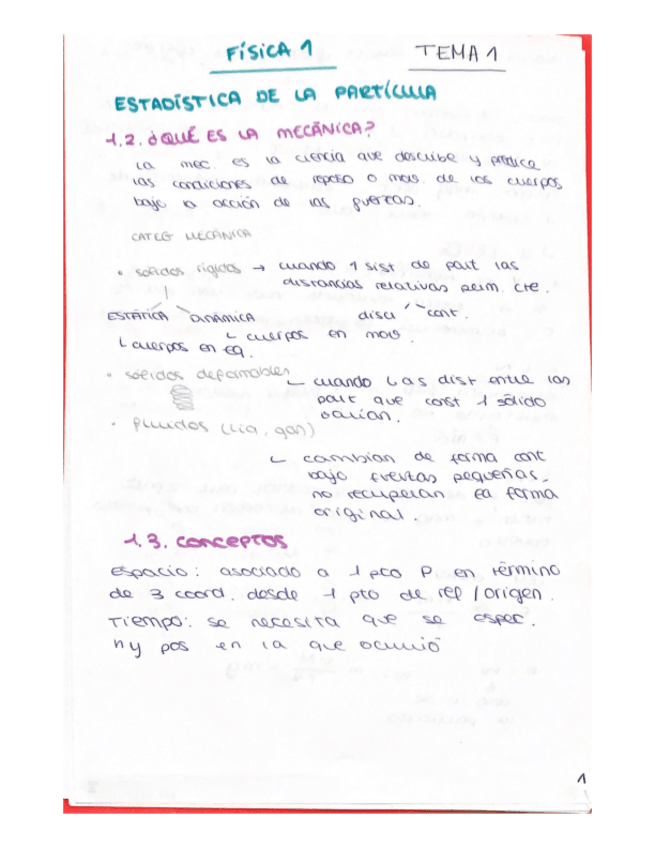 FÍSICA 1 TEMA 1
ESTADÍSTICA DE LA PARTÍCULA
1.2. ¿QUÉ ES LA MECÁNICA?
La mec. es la ciencia que describe y predice
las condiciones de reposo o mov. de los cuerpos
bajo la acción de las fuerzas.
CATEG MECÁNICA
• sólidos rígidos → cuando 1 sist de part las
distancias relativas perm. cte.
ESTÁTICA DINÁMICA disc cont.
cuerpos en mov.
cuerpos en eq.
• sólidos deformables
cuando las dist entre las
part que const 1 sólido
varían.
• fluidos (liq, gas)
cambian de forma cont
bajo fuerzas pequeñas,
no recuperan la forma
original.
1.3. CONCEPTOS
Espacio: asociado a 1 pto P. en término
de 3 coord. desde 1 pto de ref / origen.
Tiempo: se necesita que se espec.
pos en la que ocurrió
1